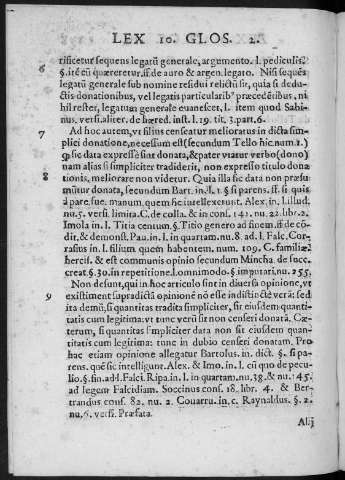 LEX 10. GLOS. 2.
rificetur sequens legatū generale, argumento. l. pediculis.
6 §. itē cū quæreretur. ff. de auro & argen. legato. Nisi sequēs
legatū generale sub nomine residui relictū sit, quia si dedu-
ctis donationibus, vel legatis particularib⁹ præcedētibus, ni
hil restet, legatum generale evanescet, l. item quod Sabi-
nus. vers. aliter. de hæred. inst. l. 19. tit. 3. part. 6.
7 Ad hoc autem, vt filius censeatur melioratus in dicta sim-
plici donatione, necessum est (secundum Tello hic. num. 1.)
ꝙ sic data expressè sint donata, & pater vtatur verbo (dono)
nam aliàs si simpliciter tradiderit, non expresso titulo dona
8 tionis, meliorare non videtur. Quia illa sic data non præsu
mūtur donata, secundum Bart. in. l. 1. §. si parens. ff. si quis
à pare. fue. manum. quem sic intellexerunt. Alex. in. l. illud.
nu. 5. versi. limita. C. de colla. & in cons. 142. nu. 22. libr. 2.
Imola in l. Titia centum. §. Titio genero ad finem. ff. de cō
dit, & demonst. Pau. in. l. in quartam. nu. 8. ad l. Falc. Cor-
rasius in. l. filium quem habentem. num. 109. C. familiæ
hercis. & est communis opinio secundum Mincha. de succ.
creat. §. 30. in repetitione. l. omnimodo. §. imputari. nu. 255.
Non desunt, qui in hoc articulo sint in diversa opinione, vt
9 existiment supradictā opinionē nō esse indistinctè verā: sed
ita demū, si quantitas tradita simpliciter, sit eiusdem quanti-
tatis cum legitima: vt tunc verū sit non censeri donatā. Cæ-
terum, si quantitas simpliciter data non sit eiusdem quan-
titatis cum legitima: tunc in dubio censeri donatam. Pro
hac etiam opinione allegatur Bartolus. in. dict. §. si pa-
rens. quē sic intelligunt. Alex. & Imo. in. l. cū quo de pecu-
lio. §. fin. ad l. Falci. Ripa. in. l. in quartam. nu. 38. & nu. 145.
ad legem Falcidiam. Soccinus cons. 18. libr. 4. & Ber-
trandus cons. 82. nu. 2. Covarru. in. c. Raynaldus. §. 2.
nu. 6. vers. Præfata.
Alij